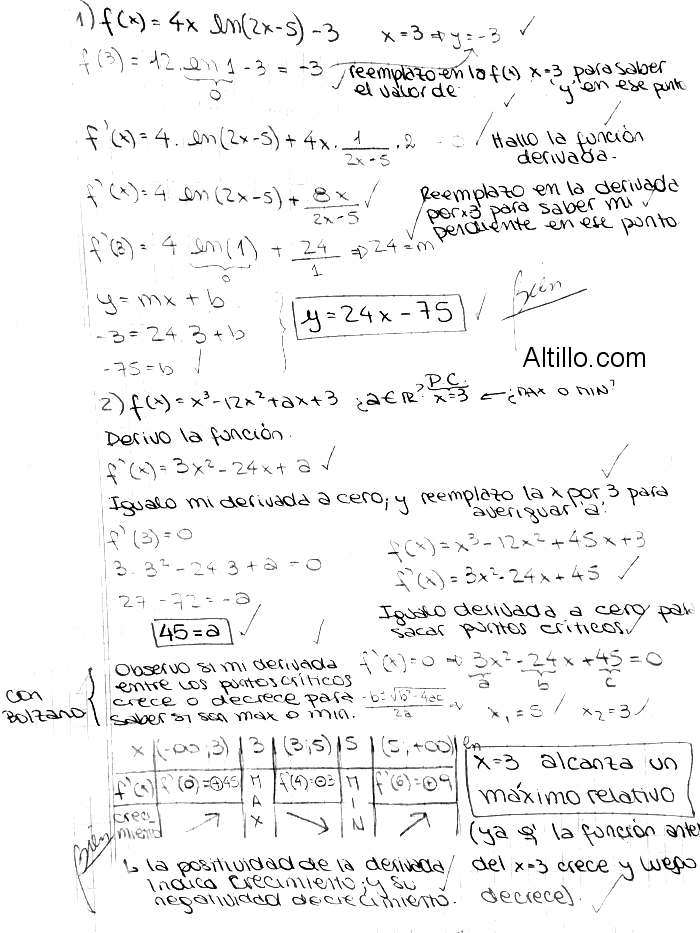 1) f(x) = 4x ln(2x-5) - 3 x = 3 ⇒ y = -3 ✓
f(3) = 12. ln 1 - 3 = -3 reemplazo en la f(x) x=3 para saber
0 el valor de 'y' en ese punto
f'(x) = 4. ln(2x-5) + 4x. 1/(2x-5) .2 Hallo la función
derivada.
f'(x) = 4 ln(2x-5) + 8x/(2x-5) ✓ Reemplazo en la derivada
por x=3 para saber mi
f'(3) = 4 ln(1) + 24/1 ⇒ 24 = m pendiente en ese punto.
0
y = mx + b
-3 = 24.3 + b
-75 = b ✓
y = 24x - 75 ✓ Bien
Altillo.com
2) f(x) = x³ - 12x² + ax + 3 ¿a ∈ R? P.C. x=3 ← ¿MAX o MIN?
Derivo la función.
f'(x) = 3x² - 24x + a ✓
Igualo mi derivada a cero, y reemplazo la x por 3 para
averiguar 'a'.
f'(3) = 0
3. 3² - 24.3 + a = 0
27 - 72 = -a
45 = a ✓
f(x) = x³ - 12x² + 45x + 3
f'(x) = 3x² - 24x + 45 ✓
Igualo derivada a cero para
sacar puntos críticos.
f'(x) = 0 ⇒ 3x² - 24x + 45 = 0
a b c
-b ± √b² - 4ac / 2a
x₁ = 5 / x₂ = 3 ✓
con
Bolzano
Observo si mi derivada
entre los puntos críticos
crece o decrece para
saber si son max o min.
x (-∞;3) 3 (3;5) 5 (5;+∞)
f'(x) f'(0)=⊕45 MAX f'(4)=⊖3 MIN f'(6)=⊕9
creci-
miento ↗ ↘ ↗
Bien
↳ la positividad de la derivada
indica crecimiento, y su
negatividad decrecimiento.
en
x=3 alcanza un
máximo relativo
(ya q' la función antes
del x=3 crece y luego
decrece). ✓